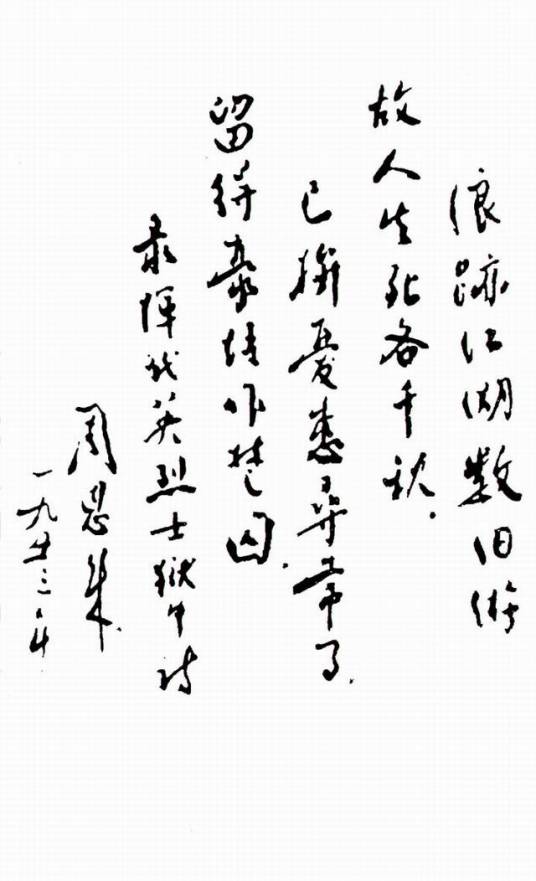 浪跡江湖数旧游
故人生死各千秋.
已擯憂患尋常事.
留得豪情作楚囚.
录惲代英烈士獄中诗
周恩来.
一九五三年